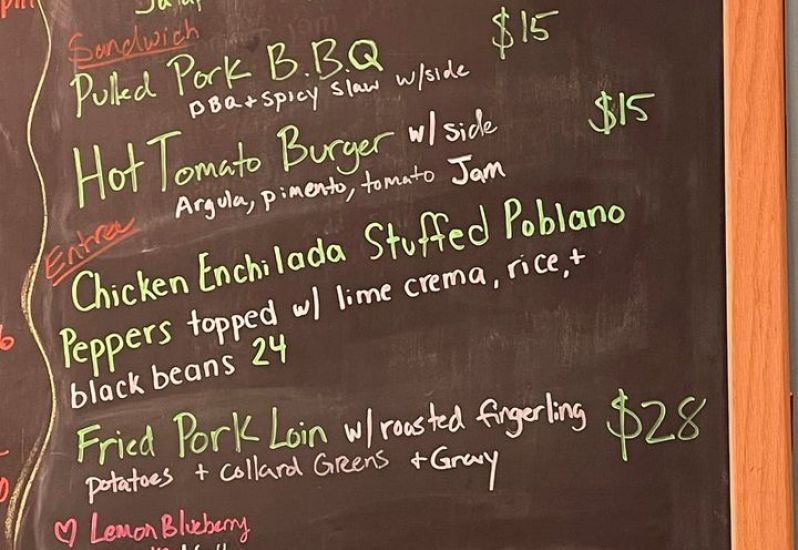 Sandwich
Pulled Pork B.B.Q $15
BBQ + spicy slaw w/side
Hot Tomato Burger w/ side $15
Argula, pimento, tomato Jam
Entrea
Chicken Enchilada Stuffed Poblano
Peppers topped w/ lime crema, rice, +
black beans 24
Fried Pork Loin w/ roasted fingerling $28
potatoes + collard Greens + Gravy
♡ Lemon Blueberry